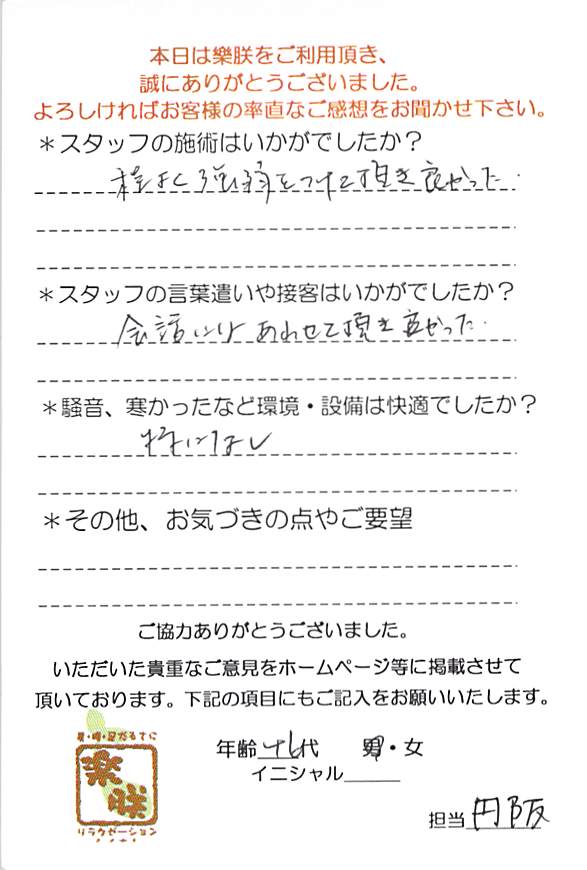 本日は樂朕をご利用頂き、
誠にありがとうございました。
よろしければお客様の率直なご感想をお聞かせ下さい。
＊スタッフの施術はいかがでしたか？
程よく強弱をつけて頂き良かった.
＊スタッフの言葉遣いや接客はいかがでしたか？
会話 あわせて頂き良かった.
＊騒音、寒かったなど環境・設備は快適でしたか？
特になし
＊その他、お気づきの点やご要望
ご協力ありがとうございました。
いただいた貴重なご意見をホームページ等に掲載させて
頂いております。下記の項目にもご記入をお願いいたします。
年齢 代 男・女
イニシャル
樂朕
リラクゼーション
担当 円阪